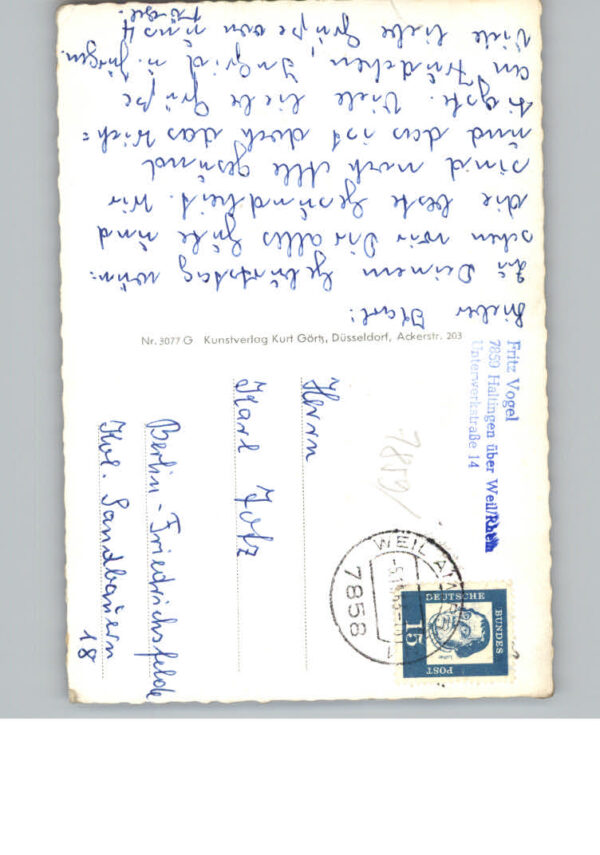 Lieber Karl!
Zu Deinem Geburtstag wün=
schen wir Dir alles Gute und
die beste Gesundheit. Wir
sind noch Alle gesund
und das ist doch das Wich=
tigste. Viele liebe Grüße
an Trudchen, Ingrid u. Jürgen.
Viele liebe Grüße von uns 4
Nr. 3077 G Kunstverlag Kurt Görtz, Düsseldorf, Ackerstr. 203
Fritz Vogel
7859 Haltingen über Weil/Rhein
Unterwerkstraße 14
WEIL AM
7858
DEUTSCHE
BUNDES
POST
15
Herrn
Karl Jotz
Berlin-Friedrichsfelde
Kol. Sandbauern
18